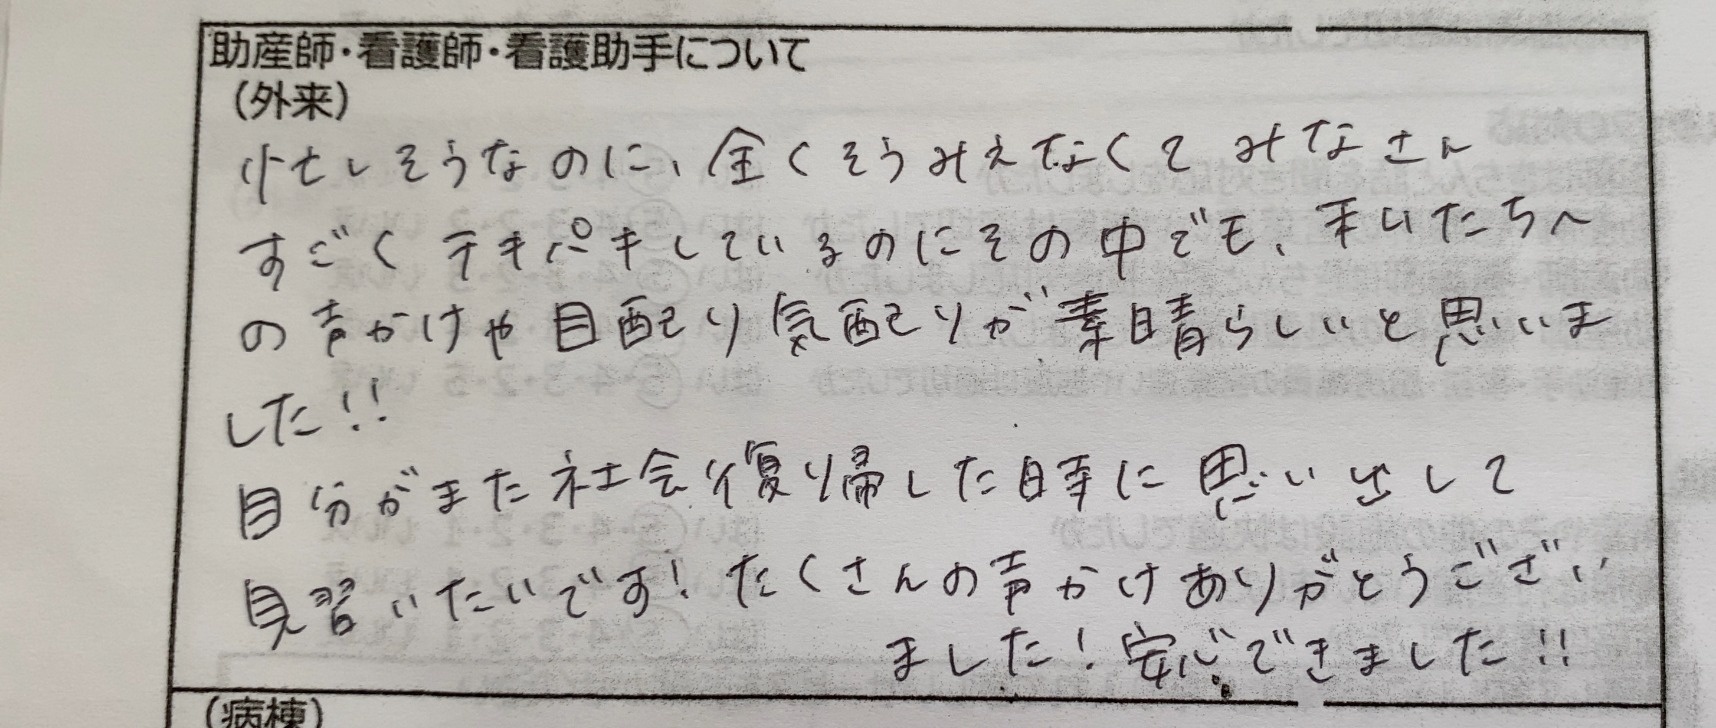 助産師・看護師・看護助手について
(外来)
忙しそうなのに、全くそうみえなくてみなさん
すごくテキパキしているのにその中でも、私たちへ
の声かけや目配り気配りが素晴らしいと思いま
した!!
自分がまた社会復帰した時に思い出して
見習いたいです!たくさんの声かけありがとうござい
ました!安心できました!!
(病棟)